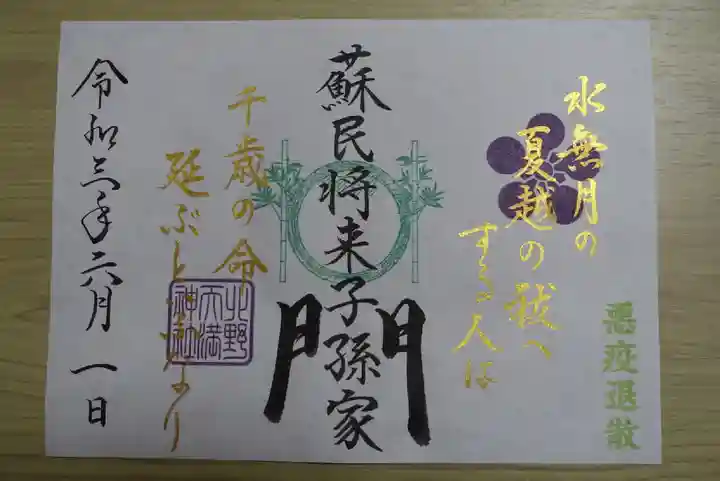 悪疫退散
水無月の
夏越の祓へ
する人は
蘇民将来子孫家
門
千歳の命
延ぶといふなり
北野
天満
神社
令和三年六月一日